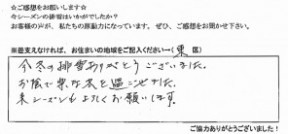 ☆ご感想をお願いします☆
今シーズンの排雪はいかがでしたか？
お客様の声が、私たちの原動力になっています。ぜひ、ご感想をお聞かせ下さい。
※差支えなければ、お住まいの地域をご記入ください→（東 区）
今冬の排雪ありがとうございました。
お陰で楽な冬を過ごせました。
来シーズンもよろしくお願いします。
ご協力ありがとうございました！